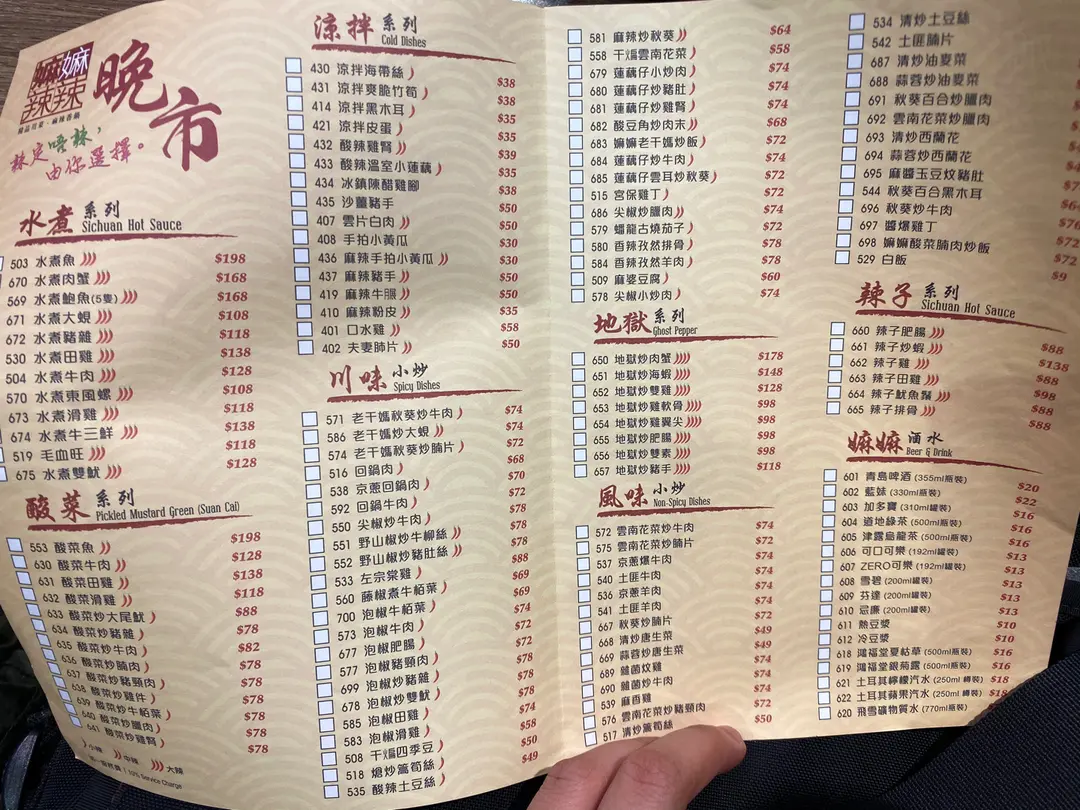 嫲嫲
辣辣
晚市
辣定唔辣，
由你選擇。
水煮 系列
Sichuan Hot Sauce
503 水煮魚 $198
670 水煮肉蟹 $168
569 水煮鮑魚(5隻) $168
671 水煮大蜆 $108
672 水煮豬雜 $118
530 水煮田雞 $138
504 水煮牛肉 $128
570 水煮東風螺 $108
673 水煮滑雞 $118
674 水煮牛三鮮 $138
519 毛血旺 $118
675 水煮雙魷 $128
酸菜 系列
Pickled Mustard Green (Suan Cai)
553 酸菜魚 $198
630 酸菜牛肉 $128
631 酸菜田雞 $138
632 酸菜滑雞 $118
633 酸菜炒大尾魷 $88
634 酸菜炒豬雜 $78
635 酸菜炒牛肉 $82
636 酸菜炒腩肉 $78
637 酸菜炒豬頸肉 $78
638 酸菜炒雞件 $78
639 酸菜炒牛栢葉 $78
640 酸菜炒腊肉 $78
641 酸菜炒雞腎 $78
小辣 中辣 大辣
10% Service Charge
涼拌 系列
Cold Dishes
430 涼拌海帶絲 $38
431 涼拌爽脆竹筍 $38
414 涼拌黑木耳 $35
421 涼拌皮蛋 $35
432 酸辣雞腎 $39
433 酸辣溫室小蓮藕 $35
434 冰鎮陳醋雞腳 $38
435 沙薑豬手 $50
407 雲片白肉 $50
408 手拍小黃瓜 $30
436 麻辣手拍小黃瓜 $30
437 麻辣豬手 $50
419 麻辣牛𦟌 $50
410 麻辣粉皮 $35
401 口水雞 $58
402 夫妻肺片 $50
川味 小炒
Spicy Dishes
571 老干媽秋葵炒牛肉 $74
586 老干媽炒大蜆 $74
574 老干媽秋葵炒腩片 $72
516 回鍋肉 $68
538 京蔥回鍋肉 $70
592 回鍋牛肉 $72
550 尖椒炒牛肉 $78
551 野山椒炒牛柳絲 $78
552 野山椒炒豬肚絲 $78
533 左宗棠雞 $88
560 藤椒煮牛栢葉 $69
700 泡椒牛栢葉 $69
573 泡椒牛肉 $74
677 泡椒肥腸 $72
577 泡椒豬頸肉 $78
699 泡椒炒豬雜 $78
678 泡椒炒雙魷 $78
585 泡椒田雞 $78
583 泡椒滑雞 $74
508 干煸四季豆 $58
518 熗炒萵筍絲 $50
535 酸辣土豆絲 $49
581 麻辣炒秋葵 $64
558 干煸雲南花菜 $58
679 蓮藕仔小炒肉 $74
680 蓮藕仔炒豬肚 $74
681 蓮藕仔炒雞腎 $74
682 酸豆角炒肉末 $68
683 嫲嫲老干媽炒飯 $72
684 蓮藕仔炒牛肉 $74
685 蓮藕仔雲耳炒秋葵 $72
515 宮保雞丁 $72
686 尖椒炒腊肉 $74
579 蟠龍古燒茄子 $72
580 香辣孜然排骨 $78
584 香辣孜然羊肉 $78
509 麻婆豆腐 $60
578 尖椒小炒肉 $74
地獄 系列
Ghost Pepper
650 地獄炒肉蟹 $178
651 地獄炒海蝦 $148
652 地獄炒雙雞 $128
653 地獄炒雞軟骨 $98
654 地獄炒雞翼尖 $98
655 地獄炒肥腸 $98
656 地獄炒雙素 $98
657 地獄炒豬手 $118
風味 小炒
Non-Spicy Dishes
572 雲南花菜炒牛肉 $74
575 雲南花菜炒腩片 $72
537 京蔥爆牛肉 $74
540 土匪牛肉 $74
536 京蔥羊肉 $74
541 土匪羊肉 $74
667 秋葵炒腩片 $72
668 清炒唐生菜 $49
669 蒜蓉炒唐生菜 $49
689 雜菌炆雞 $74
690 雜菌炒牛肉 $74
539 麻香雞 $74
576 雲南花菜炒豬頸肉 $72
517 清炒萵筍絲 $50
534 清炒土豆絲
542 土匪腩片
687 清炒油麥菜
688 蒜蓉炒油麥菜
691 秋葵百合炒腊肉
692 雲南花菜炒腊肉
693 清炒西蘭花
694 蒜蓉炒西蘭花
695 麻醬玉豆炆豬肚
544 秋葵百合黑木耳
696 秋葵炒牛肉
697 醬爆雞丁
698 嫲嫲酸菜腩肉炒飯 $72
529 白飯 $9
辣子 系列
Sichuan Hot Sauce
660 辣子肥腸 $88
661 辣子炒蝦 $138
662 辣子雞 $88
663 辣子田雞 $98
664 辣子魷魚鬚 $88
665 辣子排骨 $88
嫲嫲 酒水
Beer & Drink
601 青島啤酒 (355ml瓶裝) $20
602 藍妹 (330ml瓶裝) $22
603 加多寶 (310ml罐裝) $16
604 道地綠茶 (500ml瓶裝) $16
605 津露烏龍茶 (500ml瓶裝) $16
606 可口可樂 (192ml罐裝) $13
607 ZERO可樂 (192ml罐裝) $13
608 雪碧 (200ml罐裝) $13
609 芬達 (200ml罐裝) $13
610 忌廉 (200ml罐裝) $13
611 熱豆漿 $10
612 冷豆漿 $10
618 鴻福堂夏枯草 (500ml瓶裝) $16
619 鴻福堂銀菊露 (500ml瓶裝) $16
621 土耳其檸檬汽水 (250ml 樽裝) $18
622 土耳其蘋果汽水 (250ml 樽裝) $18
620 飛雪礦物質水 (770ml瓶裝)